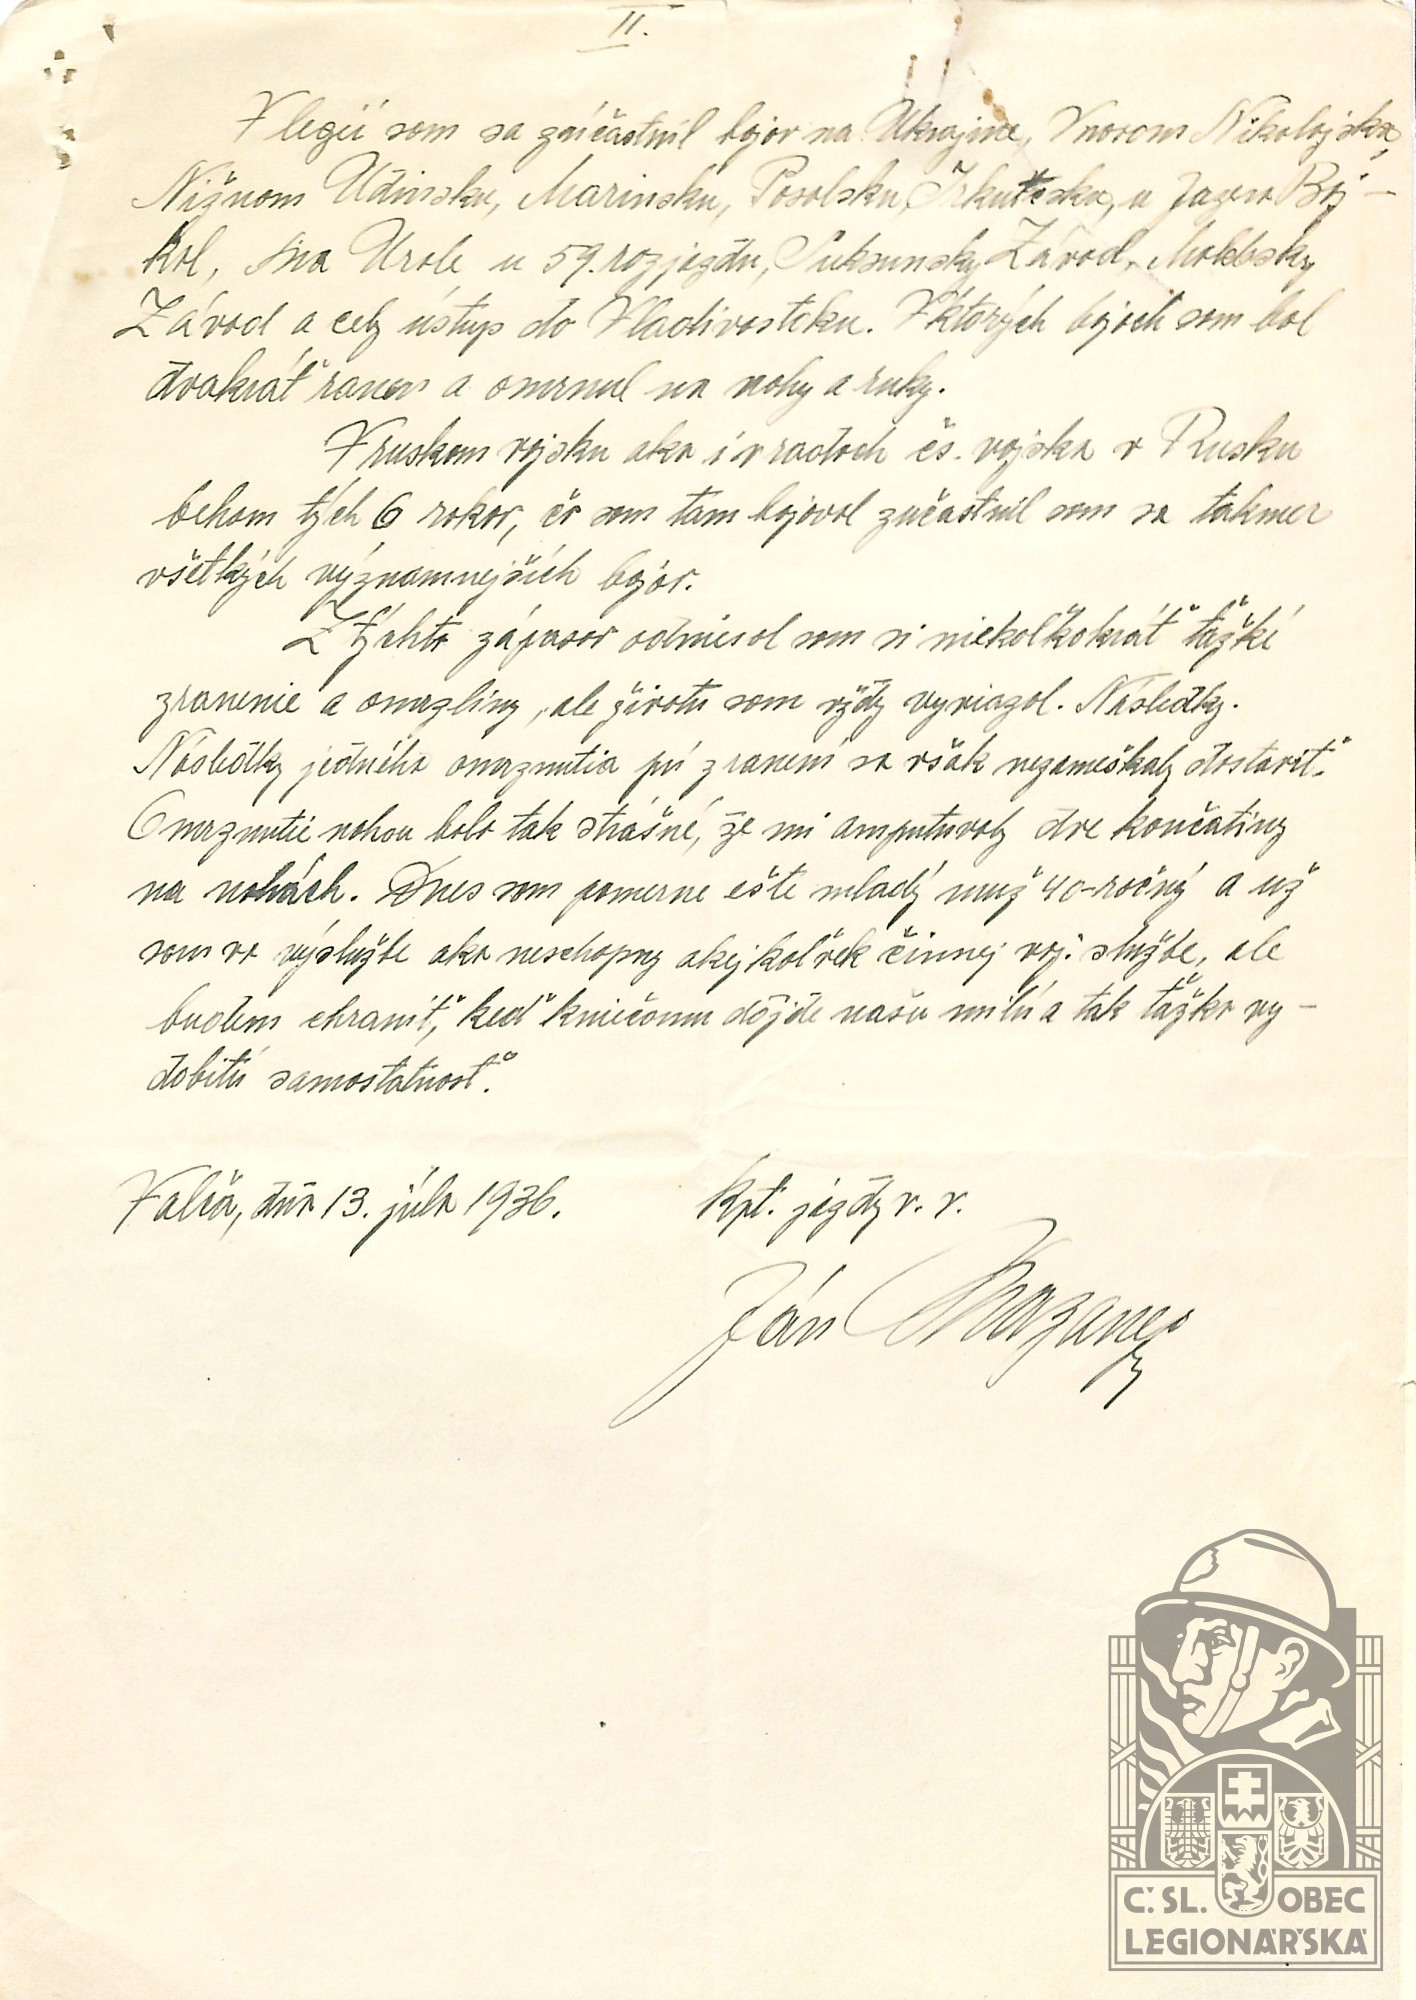 II.
V legii som sa zúčastnil bojov na Ukrajine, Nikolojsku,
Nižnom Udinsku, Marinsku, Posolsku, Irkutsku, a Jazero Baj-
kal, na Urale u 59. rozjazdu, Suksunsky Závod, Molebsky
Závod a cely ústup do Vladivostoku. V ktorých bojoch som bol
dvakráť ranen a omrnul na nohy a ruky.
V ruskom vojsku ako i v radoch čs. vojska v Rusku
behom tých 6 rokov, čo som tam bojoval zúčastnil som sa takmer
všetkých významnejších bojov.
Z týchto zápasov odniesol som si niekoľkokráť ťažké
zranenie a omrzliny, ale životu som vždy vyviazol. Následky.
Následky jedného omrznutia pri zranení sa však nezameškaly dostaviť.
Omrznutie nohou bolo tak strašné, že mi amputovaly dve končatiny
na nohách. Dnes som pomerne ešte mladý muž 40-ročný a už
som vo výslužbe ako neschopny akejkoľvek činnej voj. službe, ale
budem chraniť, keď k niečomu dôjde našu milú a tak ťažko vy-
dobitú samostatnosť.
Valča, dňa 13. júla 1936.
Kpt. jazdy v. v.
Ján
Č. SL. OBEC
LEGIONÁŘSKÁ